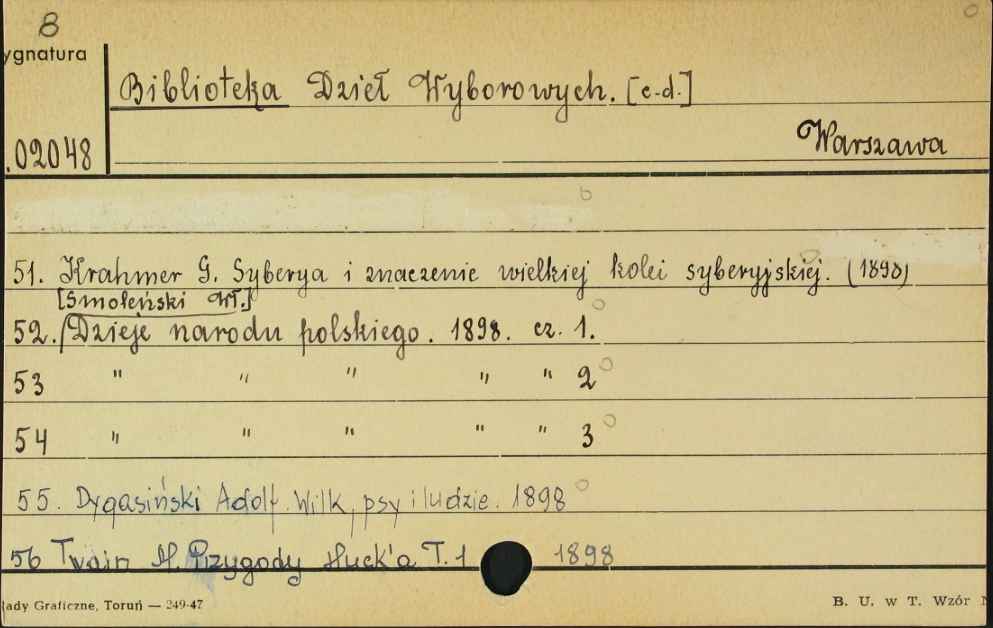 8
ygnatura
Biblioteka Dzieł Wyborowych. [c.d.]
.02048
Warszawa
51. Krahmer G. Syberya i znaczenie wielkiej kolei syberyjskiej. (1898)
[Smoleński Wł.]
52. Dzieje narodu polskiego. 1898. cz. 1.
53 " " " " " 2
54 " " " " " 3
55. Dygasiński Adolf. Wilk, psy i ludzie. 1898
56 Twain M. Przygody Huck'a T. 1 1898
łady Graficzne, Toruń — 249-47
B. U. w T. Wzór